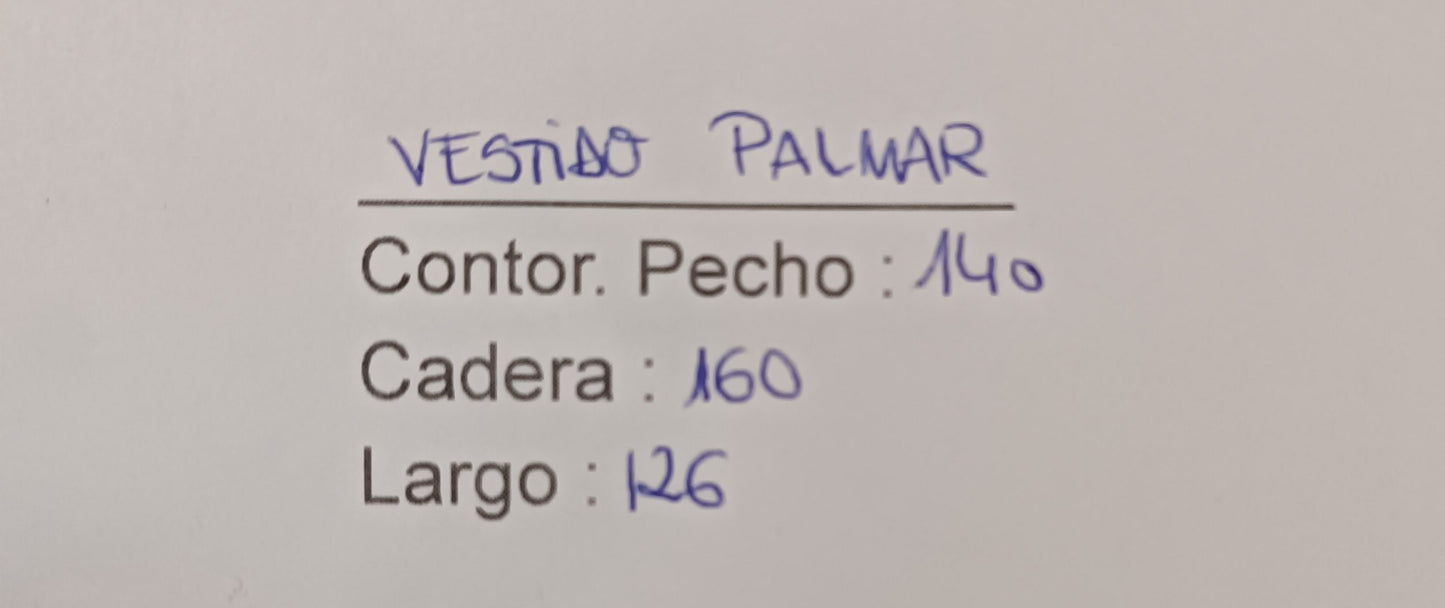 VESTIDO PALMAR
Contor. Pecho : 140
Cadera : 160
Largo : 126